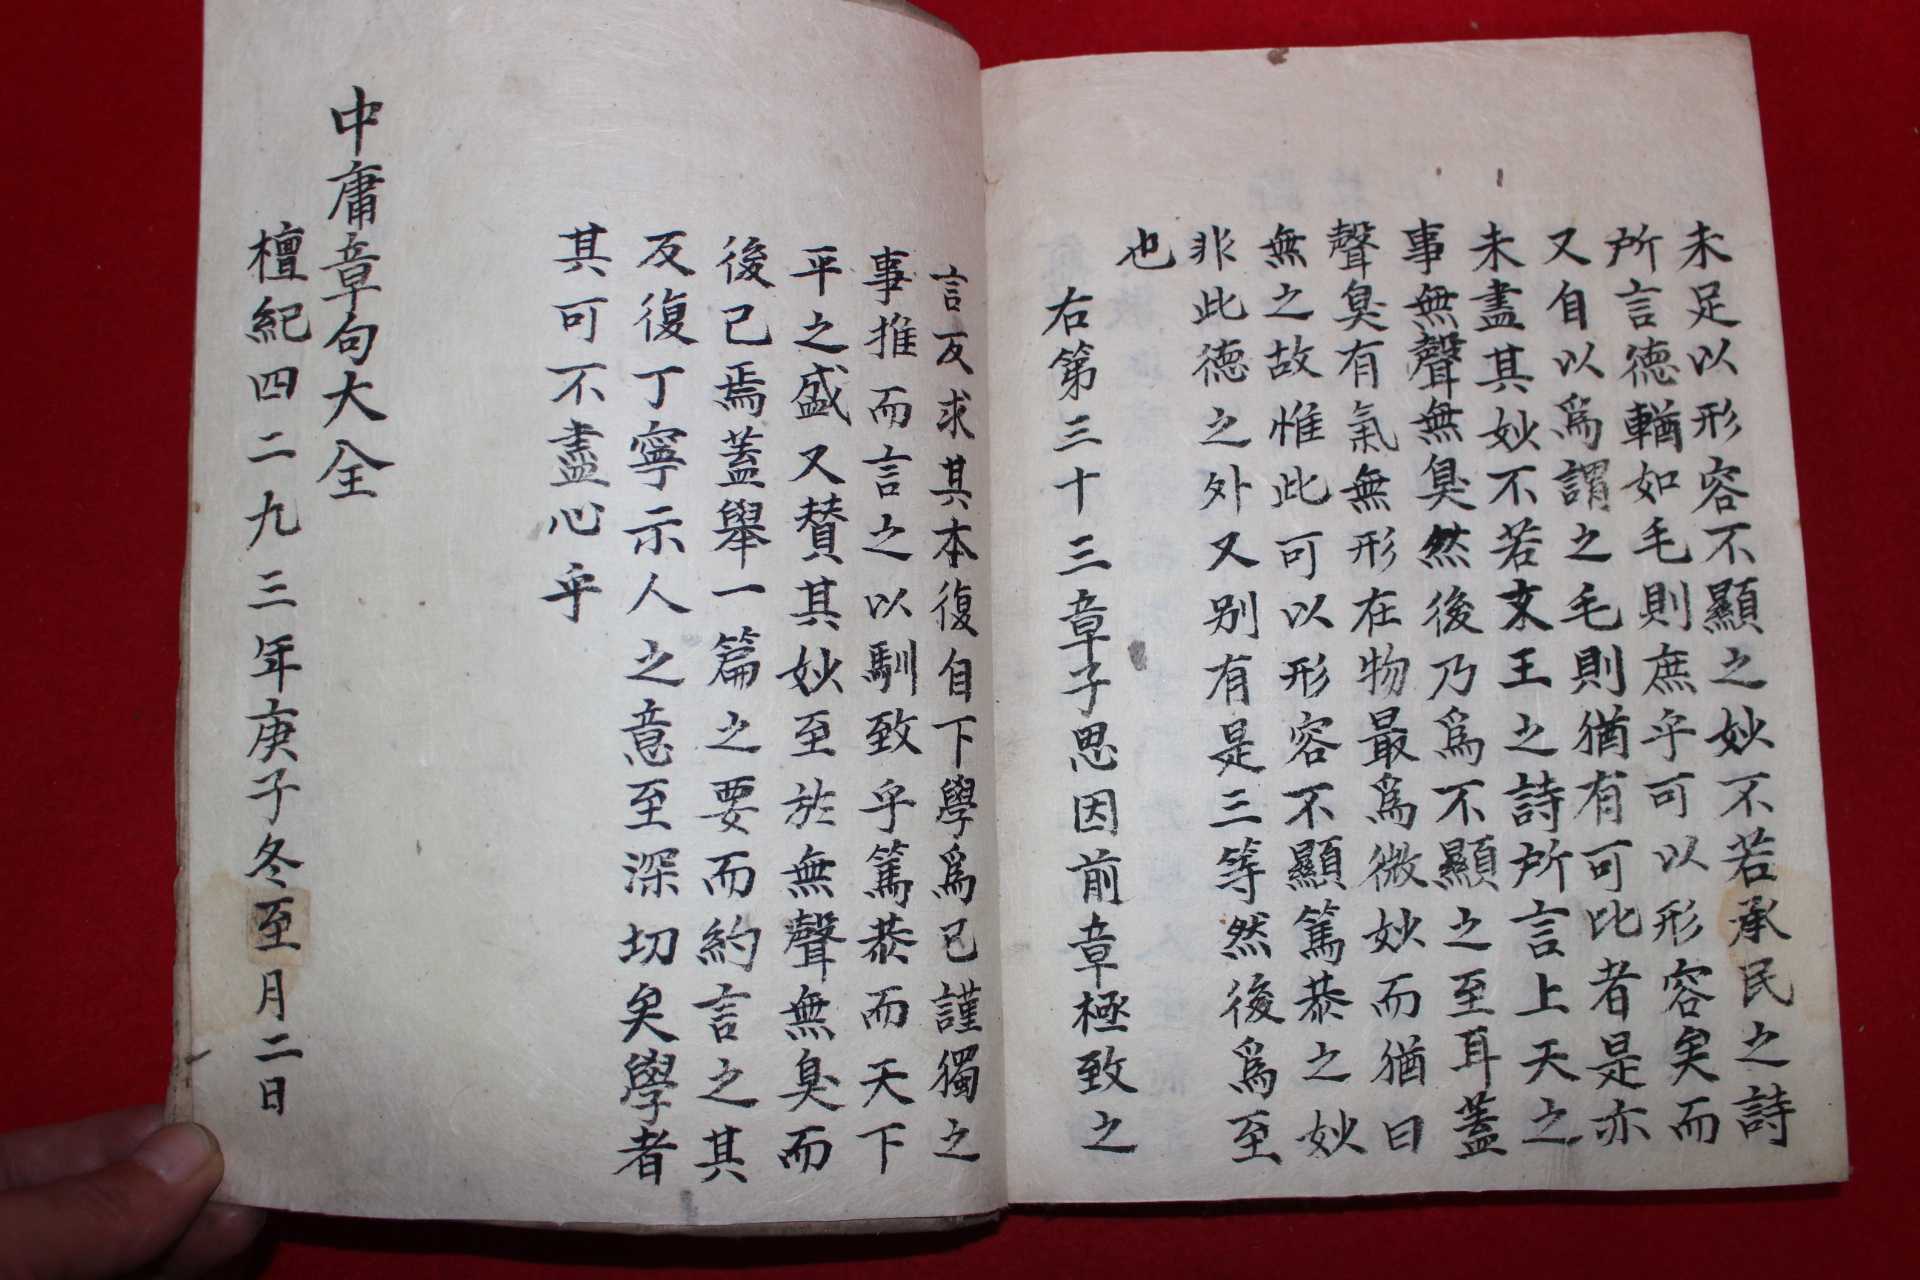 未足以形容不顯之妙不若承民之詩
所言德輶如毛則庶乎可以形容矣而
又自以爲謂之毛則猶有可比者是亦
未盡其妙不若文王之詩所言上天之
事無聲無臭然後乃爲不顯之至耳蓋
聲臭有氣無形在物最爲微妙而猶曰
無之故惟此可以形容不顯篤恭之妙
非此德之外又別有是三等然後爲至
也
右第三十三章子思因前章極致之
言反求其本復自下學爲己謹獨之
事推而言之以馴致乎篤恭而天下
平之盛又賛其妙至於無聲無臭而
後已焉蓋舉一篇之要而約言之其
反復丁寧示人之意至深切矣學者
其可不盡心乎
中庸章句大全
檀紀四二九三年庚子冬至月二日